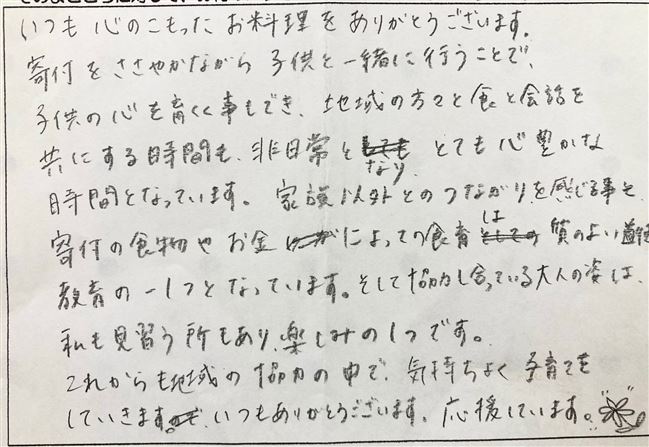 いつも心のこもったお料理をありがとうございます。
寄付をささやかながら子供と一緒に行うことで、
子供の心を育くく事もでき、地域の方々と食と会話を
共にする時間も、非日常となり とても心豊かな
時間となっています。家族以外とのつながりを感じる事も
寄付の食物やお金によっての食育は 質のよい道徳
教育の一つとなっています。そして協力し合っている大人の姿は、
私も見習う所もあり、楽しみの1つです。
これからも地域の協力の中で、気持ちよく子育てを
していきます。いつもありがとうございます。応援しています。